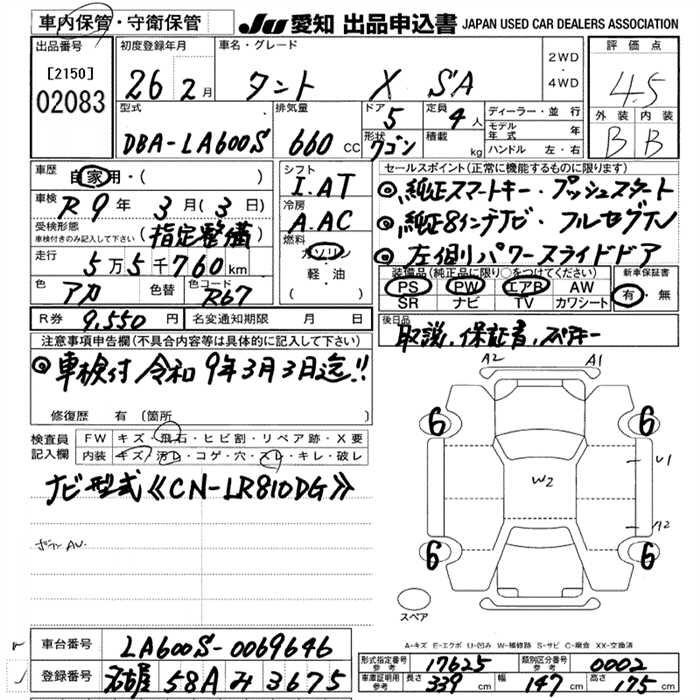 車内保管・守衛保管
JU 愛知 出品申込書 JAPAN USED CAR DEALERS ASSOCIATION
出品番号
[2150]
02083
初度登録年月
26年 2月
車名・グレード
タント X SA
2WD
・
4WD
評価点
4.5
外装 内装
B B
型式
DBA-LA600S
排気量
660 CC
ドア 5
形状 ワゴン
定員 4人
積載 kg
ディーラー・並行
モデル年式 年
ハンドル 左・右
車歴
自家用・( )
車検
R9年 3月(3日)
受検形態
車検付きのみ記入して下さい
(指定整備)
走行
5万5千760km
色 アカ 色替 色コード R67
シフト
I.AT
冷房
A.AC
燃料
ガソリン
・
軽・油
セールスポイント(正常に機能するものに限ります)
◎純正スマートキー・プッシュスタート
◎純正8インチナビ・フルセグTV
◎左側パワースライドドア
装備品(純正品に限り○をつけてください)
PS PW エアB AW
SR ナビ TV カワシート
新車保証書
有・無
R券 9,550円 名変通知期限 月 日
後日品
取説、保証書、スペアキー
注意事項申告欄(不具合内容等は具体的に記入して下さい)
◎車検付令和9年3月3日迄!!
修復歴 有 (箇所
検査員記入欄
FW キズ・飛石・ヒビ割・リペア跡・X要
内装 キズ・汚レ・コゲ・穴・スレ・キレ・破レ
ナビ型式《CN-LR810DG》
A2 A1
6 6
U1
W2
A2
6 6
スペア
A-キズ E-エクボ U-凹み W-補修跡 S-サビ C-腐食 XX-交換済
車台番号 LA600S-0069646
登録番号 名古屋 58A み 3675
型式指定番号 参考 17625 類別区分番号 参考 0002
車庫証明用 参考 長さ 339cm 幅 147cm 高さ 175cm